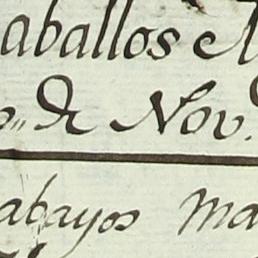 aballos
de Nov.
abayos Ma